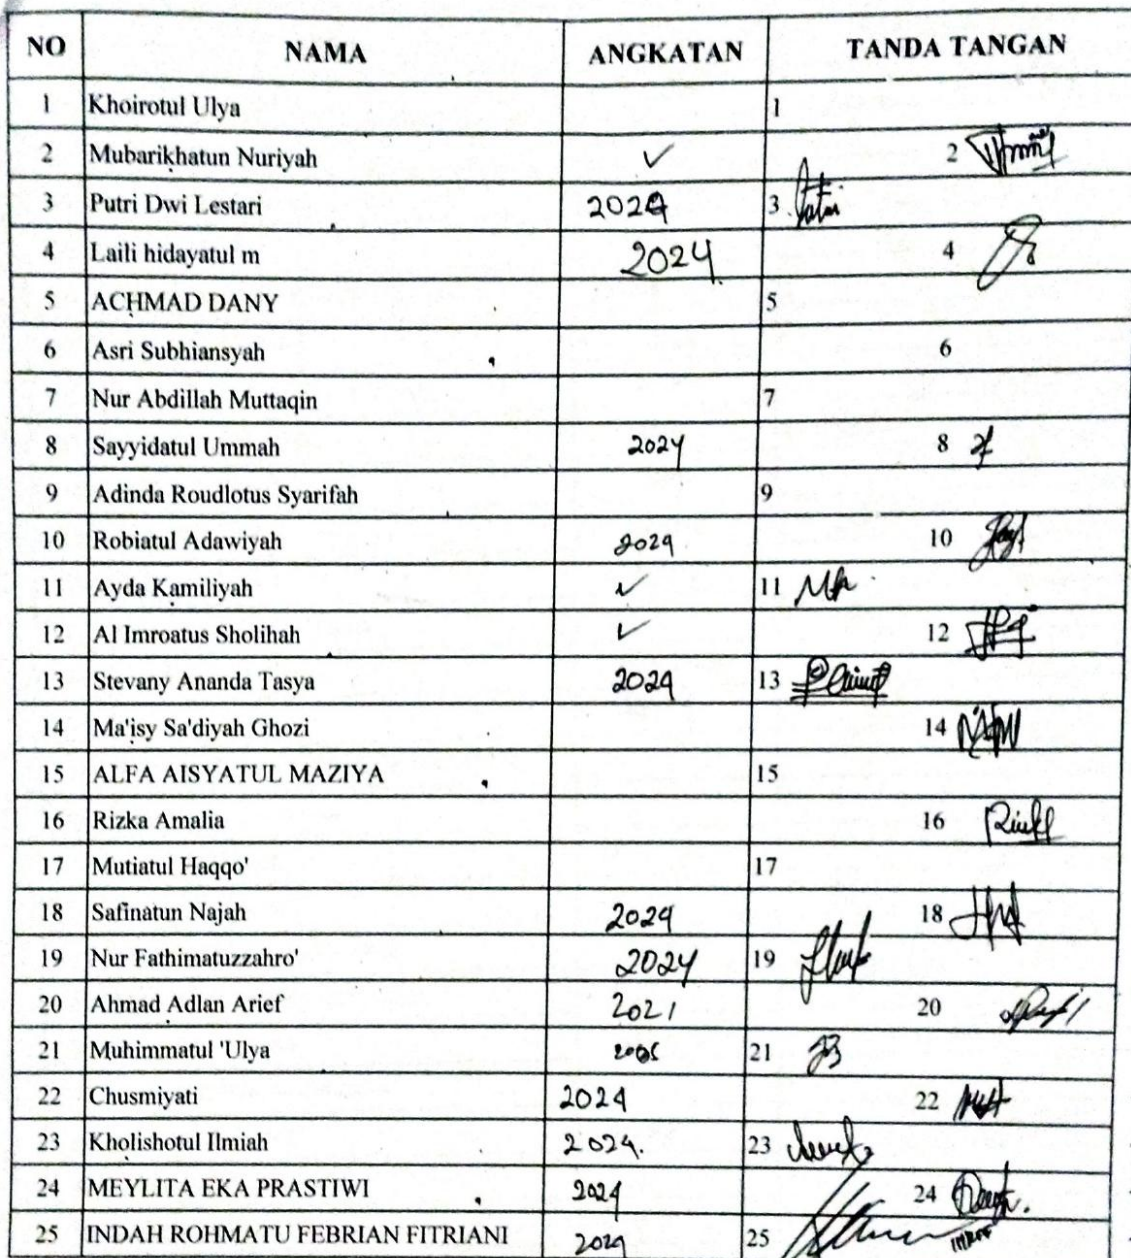 NO NAMA ANGKATAN TANDA TANGAN
1 Khoirotul Ulya 1
2 Mubarikhatun Nuriyah ✓ 2
3 Putri Dwi Lestari 2024 3
4 Laili hidayatul m 2024 4
5 ACHMAD DANY 5
6 Asri Subhiansyah 6
7 Nur Abdillah Muttaqin 7
8 Sayyidatul Ummah 2024 8
9 Adinda Roudlotus Syarifah 9
10 Robiatul Adawiyah 2024 10
11 Ayda Kamiliyah ✓ 11
12 Al Imroatus Sholihah ✓ 12
13 Stevany Ananda Tasya 2024 13
14 Ma'isy Sa'diyah Ghozi 14
15 ALFA AISYATUL MAZIYA 15
16 Rizka Amalia 16
17 Mutiatul Haqqo' 17
18 Safinatun Najah 2024 18
19 Nur Fathimatuzzahro' 2024 19
20 Ahmad Adlan Arief 2021 20
21 Muhimmatul 'Ulya 21
22 Chusmiyati 2024 22
23 Kholishotul Ilmiah 2024. 23
24 MEYLITA EKA PRASTIWI 2024 24
25 INDAH ROHMATU FEBRIAN FITRIANI 2024 25